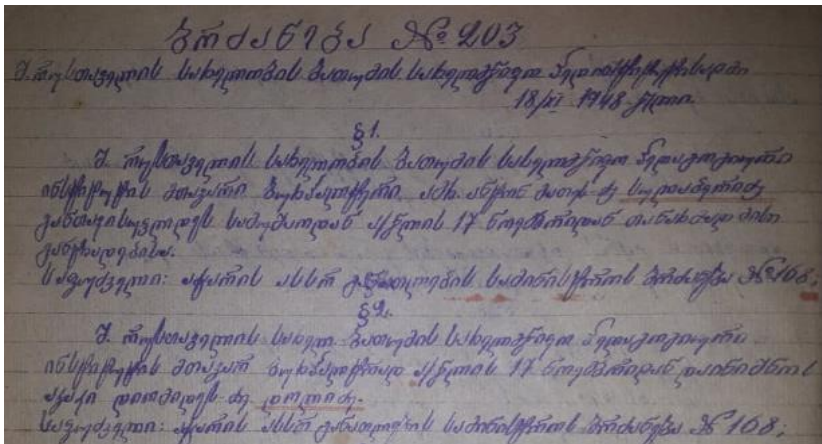 ბრძანება №203
შ. რუსთაველის სახელობის ბათუმის სახელმწიფო პედინსტიტუტისადმი
18/XI 1948 წელი.
§1.
შ. რუსთაველის სახელობის ბათუმის სახელმწიფო პედაგოგიური
ინსტიტუტის მთავარი ბუხჰალტერი ამხ. ანტონ მათეს-ძე
განთავისუფლდეს სამუშაოდან ა/წლის 17 ნოემბრიდან თანახმად მისი
განცხადებისა.
საფუძველი: აჭარის ასსრ განათლების სამინისტროს ბრძანება №168;
§2.
შ. რუსთაველის სახელ. ბათუმის სახელმწიფო პედაგოგიური
ინსტიტუტის მთავარ ბუხჰალტრად ა/წლის 17 ნოემბრიდან დაინიშნოს
აკაკი დიომიდეს-ძე დოლიძე.
საფუძველი: აჭარის ასსრ განათლების სამინისტროს ბრძანება №168;